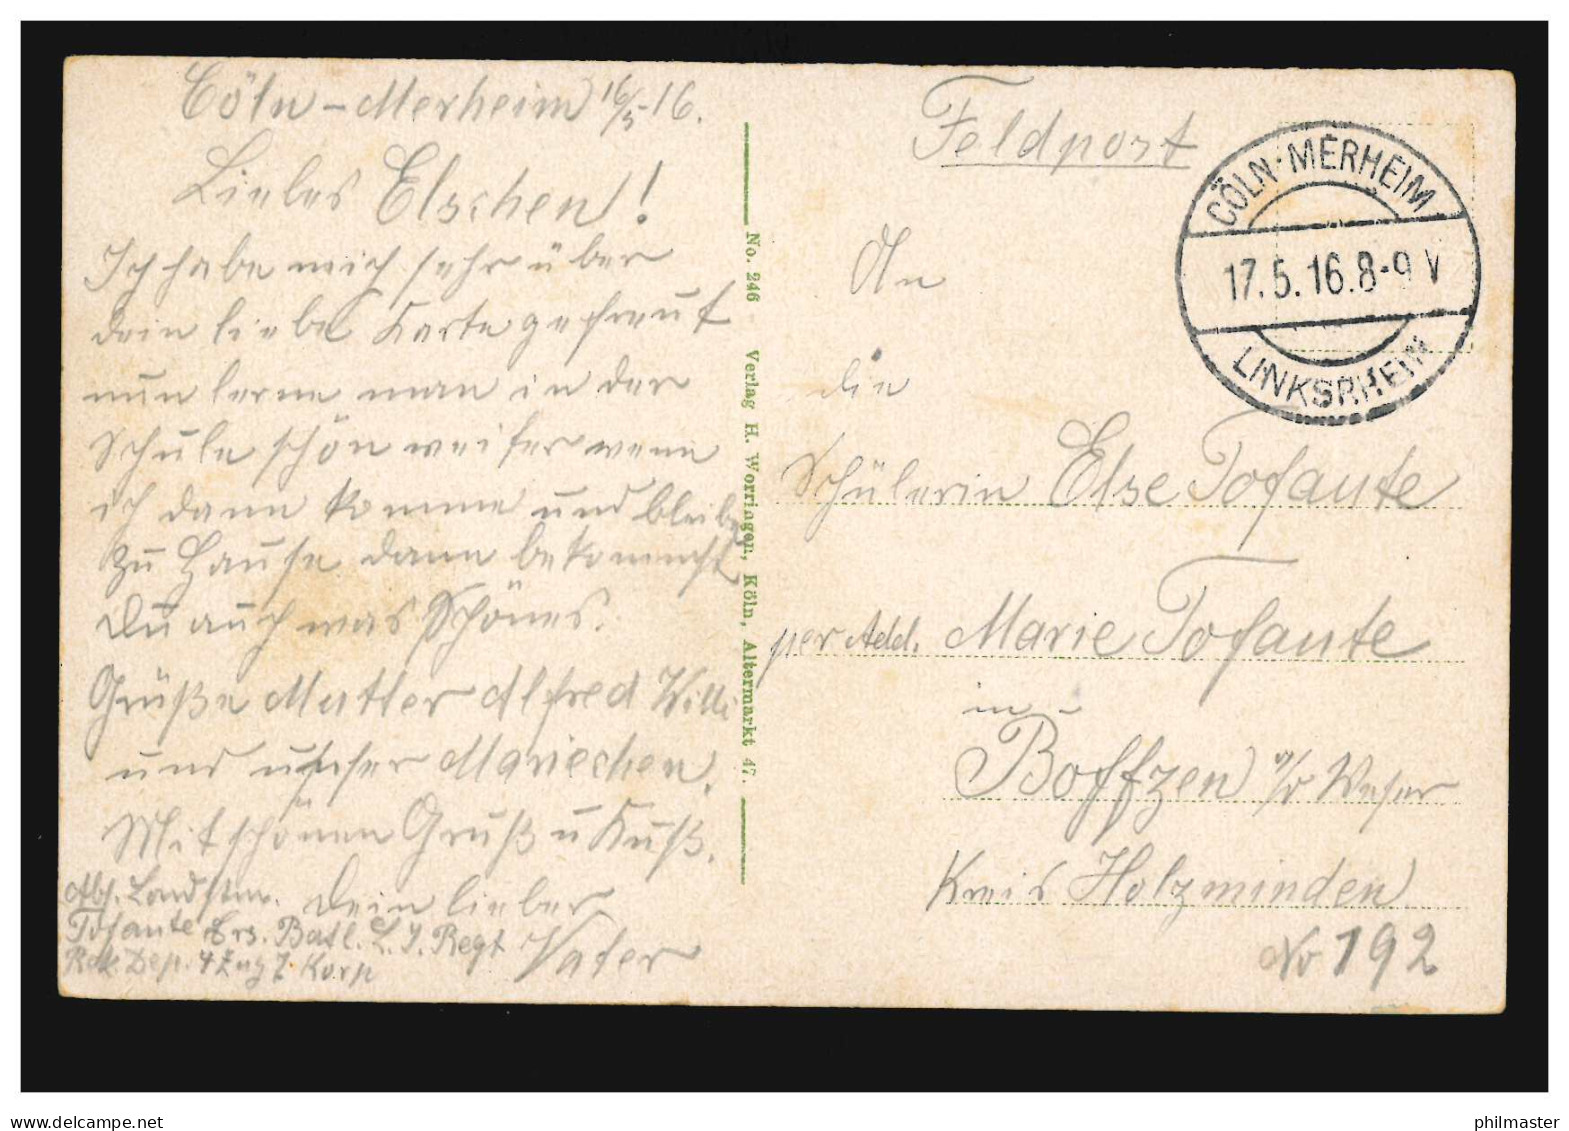 Cöln-Merheim 16/5-16.
Liebes Elschen!
Ich habe mich sehr über
dein liebe Karte gefreut
nun lerne man in der
Schule schön weiter wenn
ich dann komme und bleibe
zu Hause dann bekommst
Du auch was Schönes.
Grüße Mutter Alfred Willi
und unser Mariechen.
Mit schönen Gruß u Kuß.
Dein lieber
Vater
Abs. Landstm.
Tofaute Ers. Batl. L. I. Regt
Rek. Dep. 4 Zug 7 Korp
No. 246 Verlag H. Worringen, Köln, Altermarkt 47.
Feldpost
CÖLN-MERHEIM
17.5.16.8-9 V
LINKSRHEIN
An
die
Schülerin Else Tofaute
per Add. Marie Tofaute
in
Boffzen a/d Weser
Kreis Holzminden
No 192
www.delcampe.net
philmaster